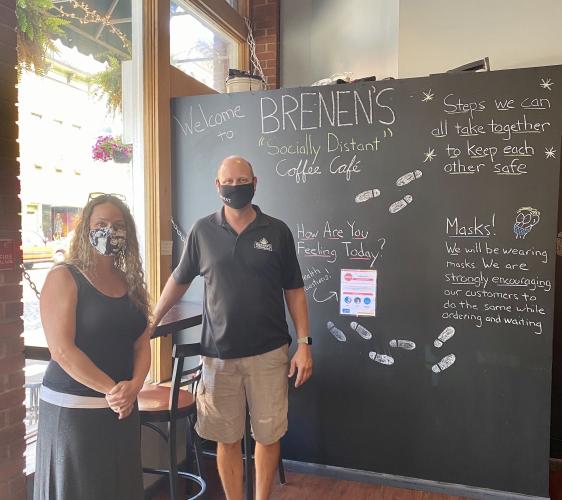 Welcome
to
BRENEN'S
"Socially Distant"
Coffee Café
Steps we can
all take together
to keep each
other safe
How Are You
Feeling Today?
Masks!
We will be wearing
masks. We are
strongly encouraging
our customers to
do the same while
ordering and waiting